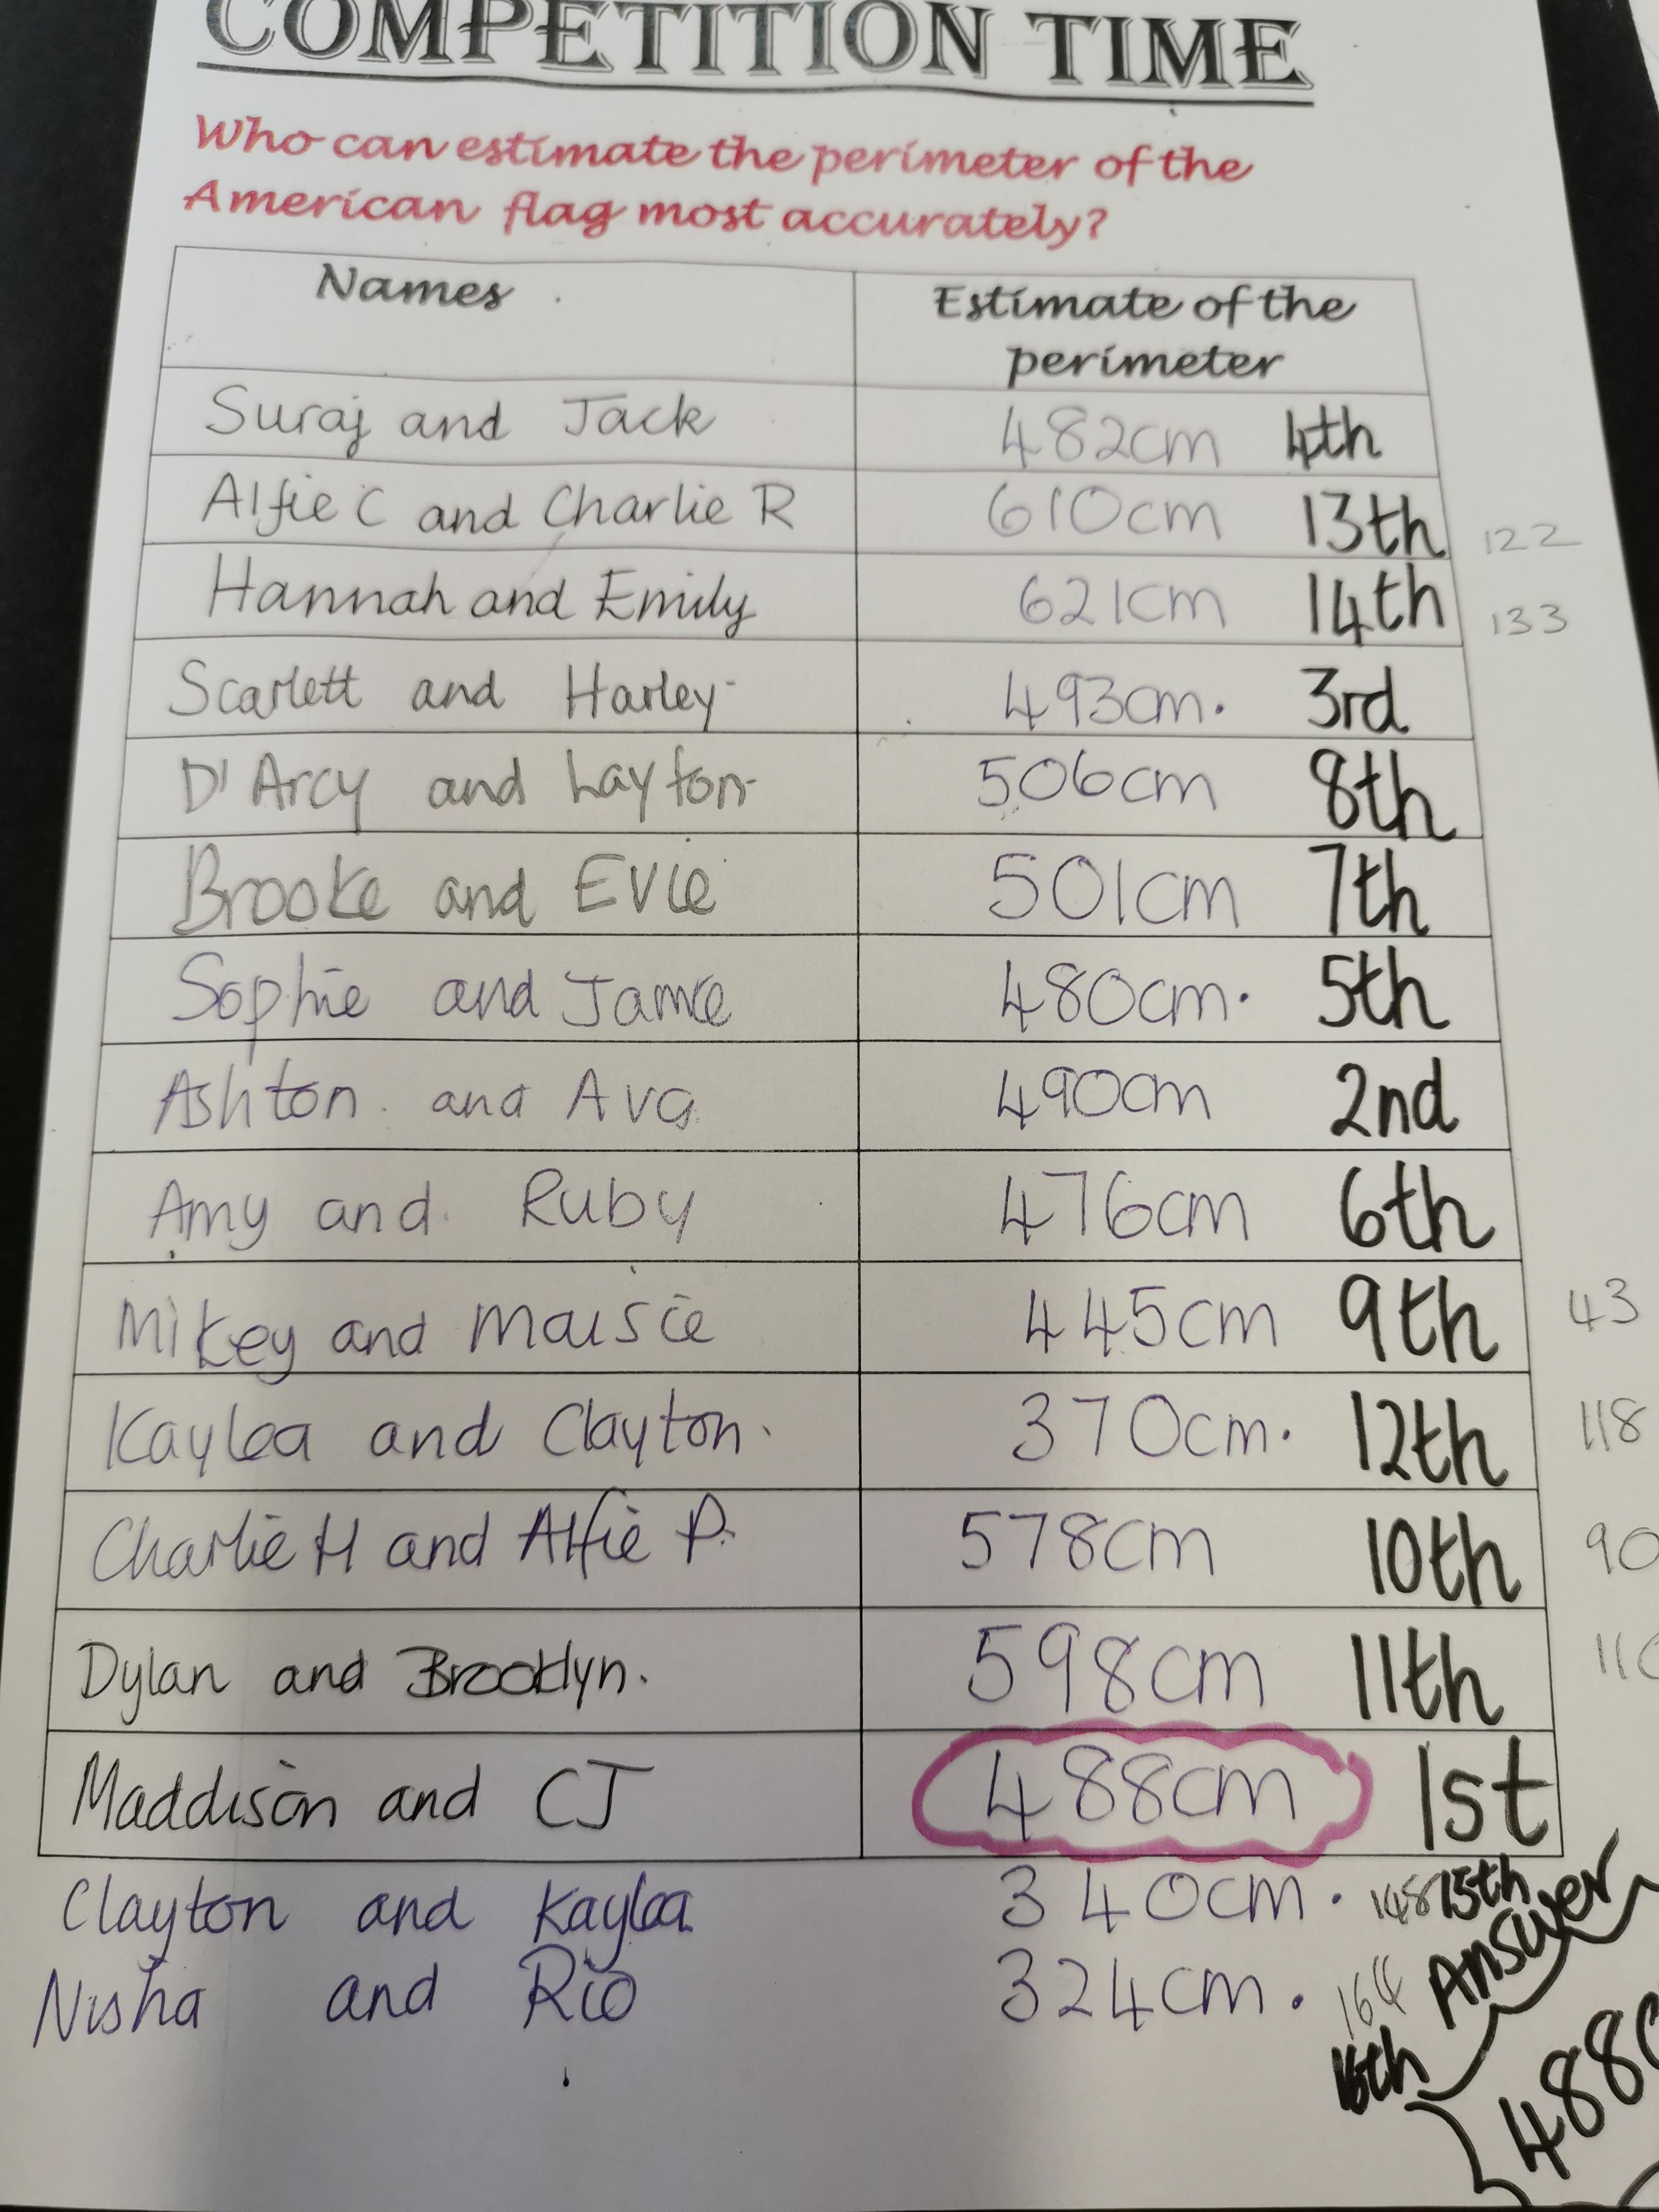 COMPETITION TIME
Who can estimate the perimeter of the
American flag most accurately?
Names Estimate of the
perimeter
Suraj and Jack 482cm 4th
Alfie C and Charlie R 610cm 13th 122
Hannah and Emily 621cm 14th 133
Scarlett and Harley 493cm. 3rd
D'Arcy and Layton 506cm 8th
Brooke and Evie 501cm 7th
Sophie and Jamie 480cm. 5th
Ashton and Ava 490cm 2nd
Amy and Ruby 476cm 6th
Mikey and Maisie 445cm 9th 43
Kaylea and Clayton. 370cm. 12th 118
Charlie H and Alfie P. 578cm 10th 90
Dylan and Brooklyn. 598cm 11th 110
Maddison and CJ 488cm 1st
Clayton and Kaylea 340cm. 148 15th
Nisha and Rio 324cm. 164
16th
Answer
488c